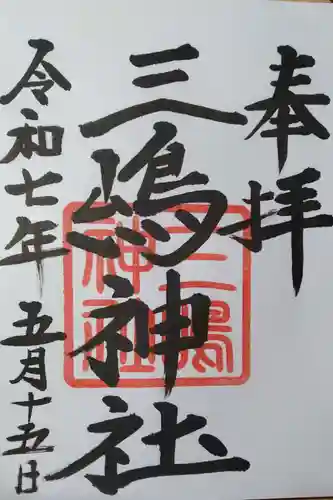 奉拝
三嶋神社
三嶋
神社
令和七年 五月十五日